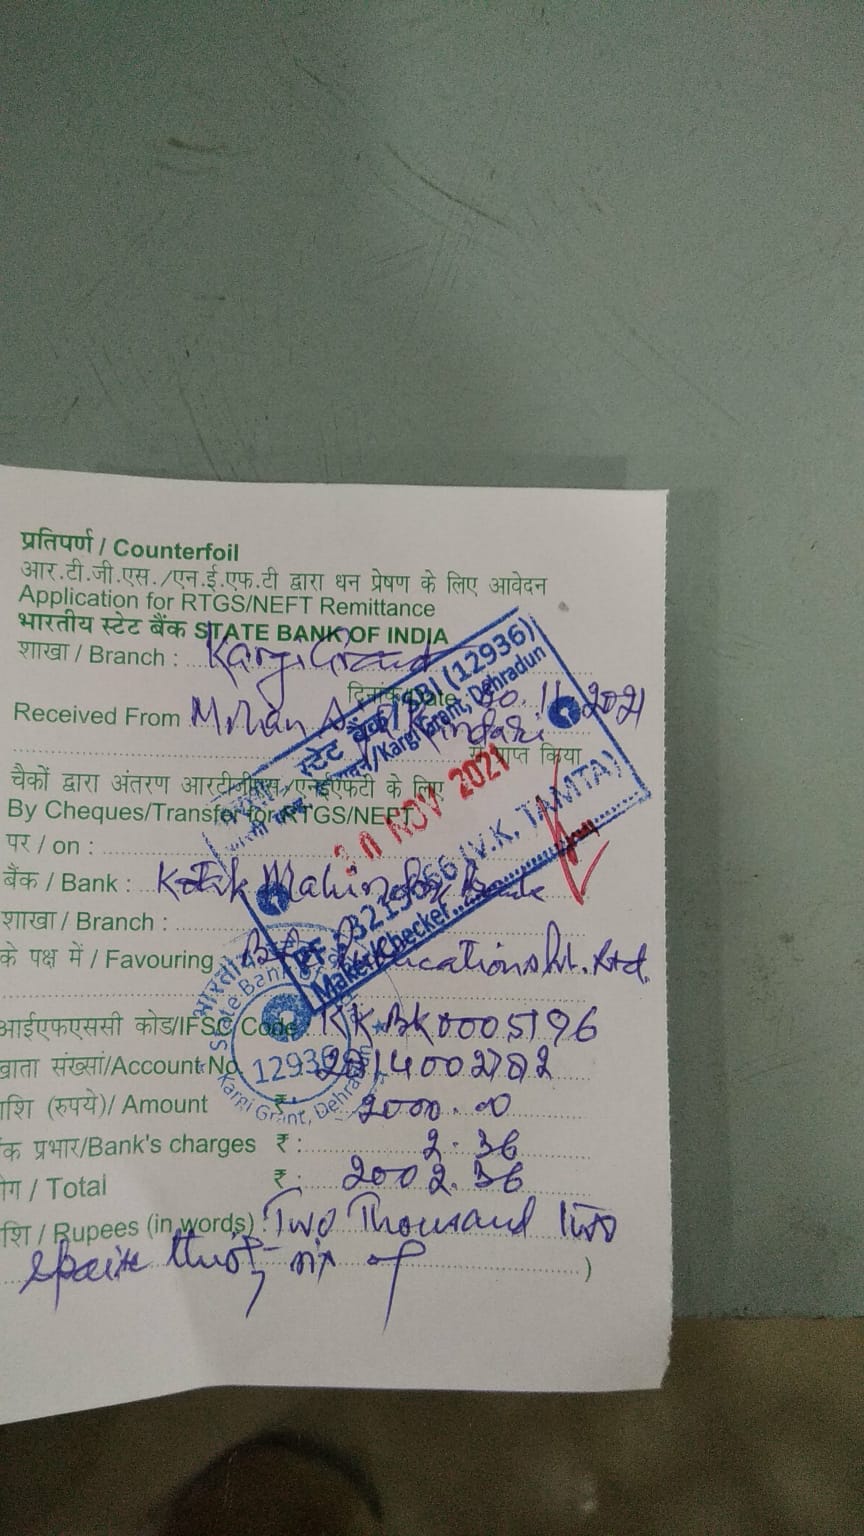 प्रतिपर्ण / Counterfoil
आर.टी.जी.एस./एन.ई.एफ.टी द्वारा धन प्रेषण के लिए आवेदन
Application for RTGS/NEFT Remittance
भारतीय स्टेट बैंक STATE BANK OF INDIA
शाखा / Branch : Kargi Grant
दिनांक/Date 30.11.2021
Received From Mohan
से प्राप्त किया
चैकों द्वारा अंतरण आरटीजीएस/एनईएफटी के लिए
By Cheques/Transfer for RTGS/NEFT
पर / on :
बैंक / Bank : Kotak Mahindra Bank
शाखा / Branch :
के पक्ष में / Favouring Education Pvt. Ltd.
आईएफएससी कोड/IFSC Code KKBK0005196
खाता संख्सां/Account No.
राशि (रुपये)/ Amount ₹: 2000.00
क प्रभार/Bank's charges ₹: 2.36
ोग / Total ₹: 2002.36
शि / Rupees (in words) : Two Thousand two
thirty six
)
स्टेट बैंक/SBI (12936)
/Kargi Grant, Dehradun
30 NOV 2021
(V.K. TAMTA)
Maker/Checker
State Bank of
12936
Kargi Grant, Dehradun